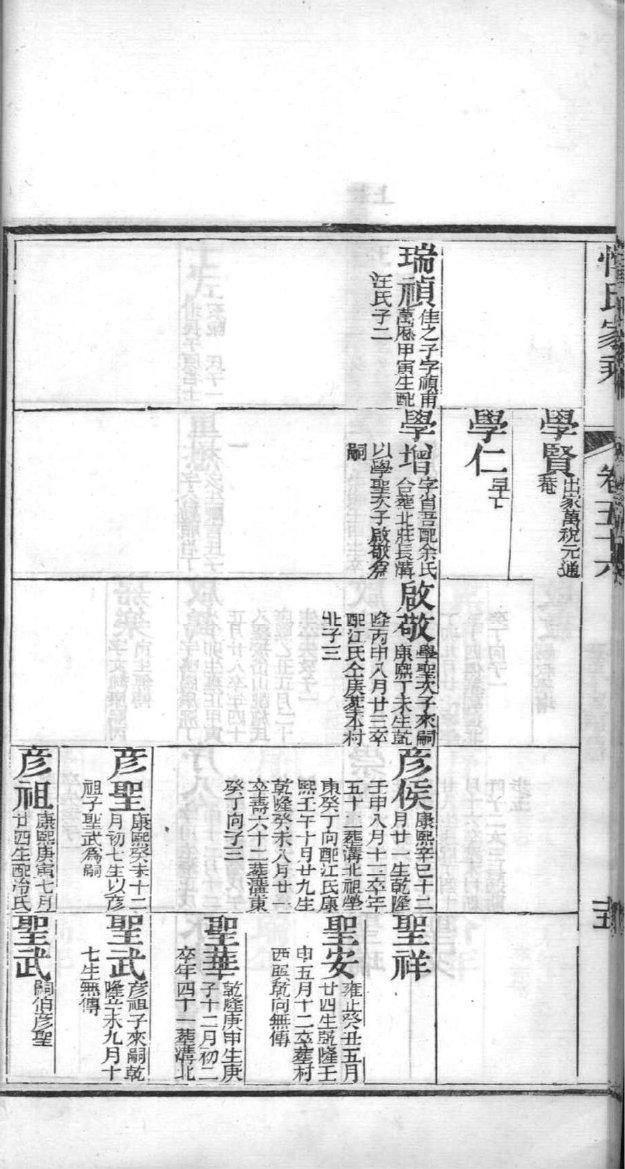 惲氏家乘
卷五十六
五
瑞禎
佳之子字禎甫
萬厯甲寅生配
汪氏子二
學賢
出家萬稅元通
菴
學仁
早亡
學增
字省吾配余氏
合葬北莊長溝
以學聖次子啟敬爲
嗣
啟敬
學聖次子來嗣
康熙丁未生乾
隆丙申八月廿三卒
配江氏仝庚葬本村
北子三
彦侯
康熙辛巳十二
月廿一生乾隆
壬申八月十二卒年
五十二葬溝北祖塋
東癸丁向配江氏康
熙壬午十月廿九生
乾隆癸未八月廿一
卒壽六十二葬溝東
癸丁向子三
彦聖
康熙癸未十二
月初七生以彦
祖子聖武爲嗣
彦祖
康熙庚寅七月
廿四生配冶氏
聖祥
聖安
雍正癸丑五月
廿四生乾隆壬
申五月十二卒葬村
西巽乾向無傳
聖華
乾隆庚申生庚
子十二月初二
卒年四十一葬溝北
聖武
彦祖子來嗣乾
隆辛未九月十
七生無傳
聖武
嗣伯彦聖